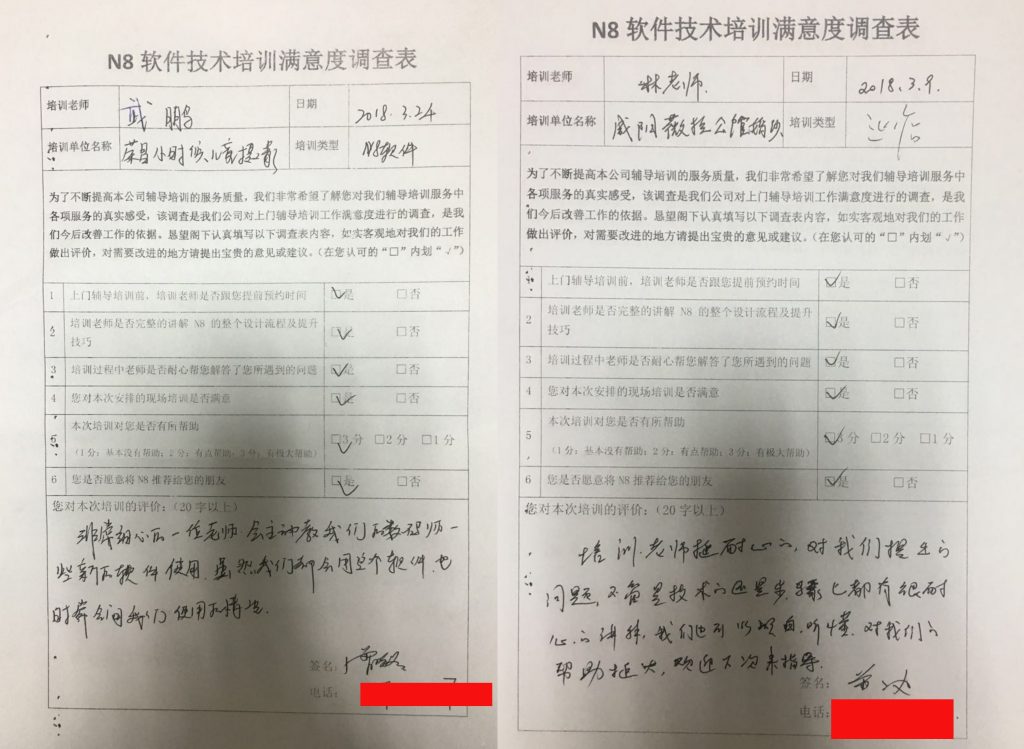 N8 软件技术培训满意度调查表
培训老师 武 鹏 日期 2018.3.24
培训单位名称 荣昌小时候儿童摄影 培训类型 N8软件
为了不断提高本公司辅导培训的服务质量，我们非常希望了解您对我们辅导培训服务中
各项服务的真实感受，该调查是我们公司对上门辅导培训工作满意度进行的调查，是我
们今后改善工作的依据。恳望阁下认真填写以下调查表内容，如实客观地对我们的工作
做出评价，对需要改进的地方请提出宝贵的意见或建议。（在您认可的“□”内划“√”）
1 上门辅导培训前，培训老师是否跟您提前预约时间 ☑是 □否
2 培训老师是否完整的讲解 N8 的整个设计流程及提升
技巧 ☑是 □否
3 培训过程中老师是否耐心帮您解答了您所遇到的问题 ☑是 □否
4 您对本次安排的现场培训是否满意 ☑是 □否
5 本次培训对您是否有所帮助
（1分：基本没有帮助；2分：有点帮助；3分：有极大帮助） ☑3分 □2分 □1分
6 您是否愿意将 N8 推荐给您的朋友 ☑是 □否
您对本次培训的评价：（20 字以上）
非常细心的一位老师 会主动教我们的数码师一
些新的软件使用. 虽然我们都会用这个软件. 也
时常会问我们使用的情况.
签名：
电话：
N8 软件技术培训满意度调查表
培训老师 林老师. 日期 2018.3.9.
培训单位名称 咸阳薇拉公馆婚纱 培训类型
为了不断提高本公司辅导培训的服务质量，我们非常希望了解您对我们辅导培训服务中
各项服务的真实感受，该调查是我们公司对上门辅导培训工作满意度进行的调查，是我
们今后改善工作的依据。恳望阁下认真填写以下调查表内容，如实客观地对我们的工作
做出评价，对需要改进的地方请提出宝贵的意见或建议。（在您认可的“□”内划“√”）
1 上门辅导培训前，培训老师是否跟您提前预约时间 ☑是 □否
2 培训老师是否完整的讲解 N8 的整个设计流程及提升
技巧 ☑是 □否
3 培训过程中老师是否耐心帮您解答了您所遇到的问题 ☑是 □否
4 您对本次安排的现场培训是否满意 ☑是 □否
5 本次培训对您是否有所帮助
（1分：基本没有帮助；2分：有点帮助；3分：有极大帮助） ☑3分 □2分 □1分
6 您是否愿意将 N8 推荐给您的朋友 ☑是 □否
您对本次培训的评价：（20 字以上）
培训老师挺耐心的, 对我们提出的
问题, 不管是技术的还是步骤上都有很耐
心的讲解, 我们也可以明白. 听懂. 对我们的
帮助挺大, 欢迎下次来指导.
签名：
电话：